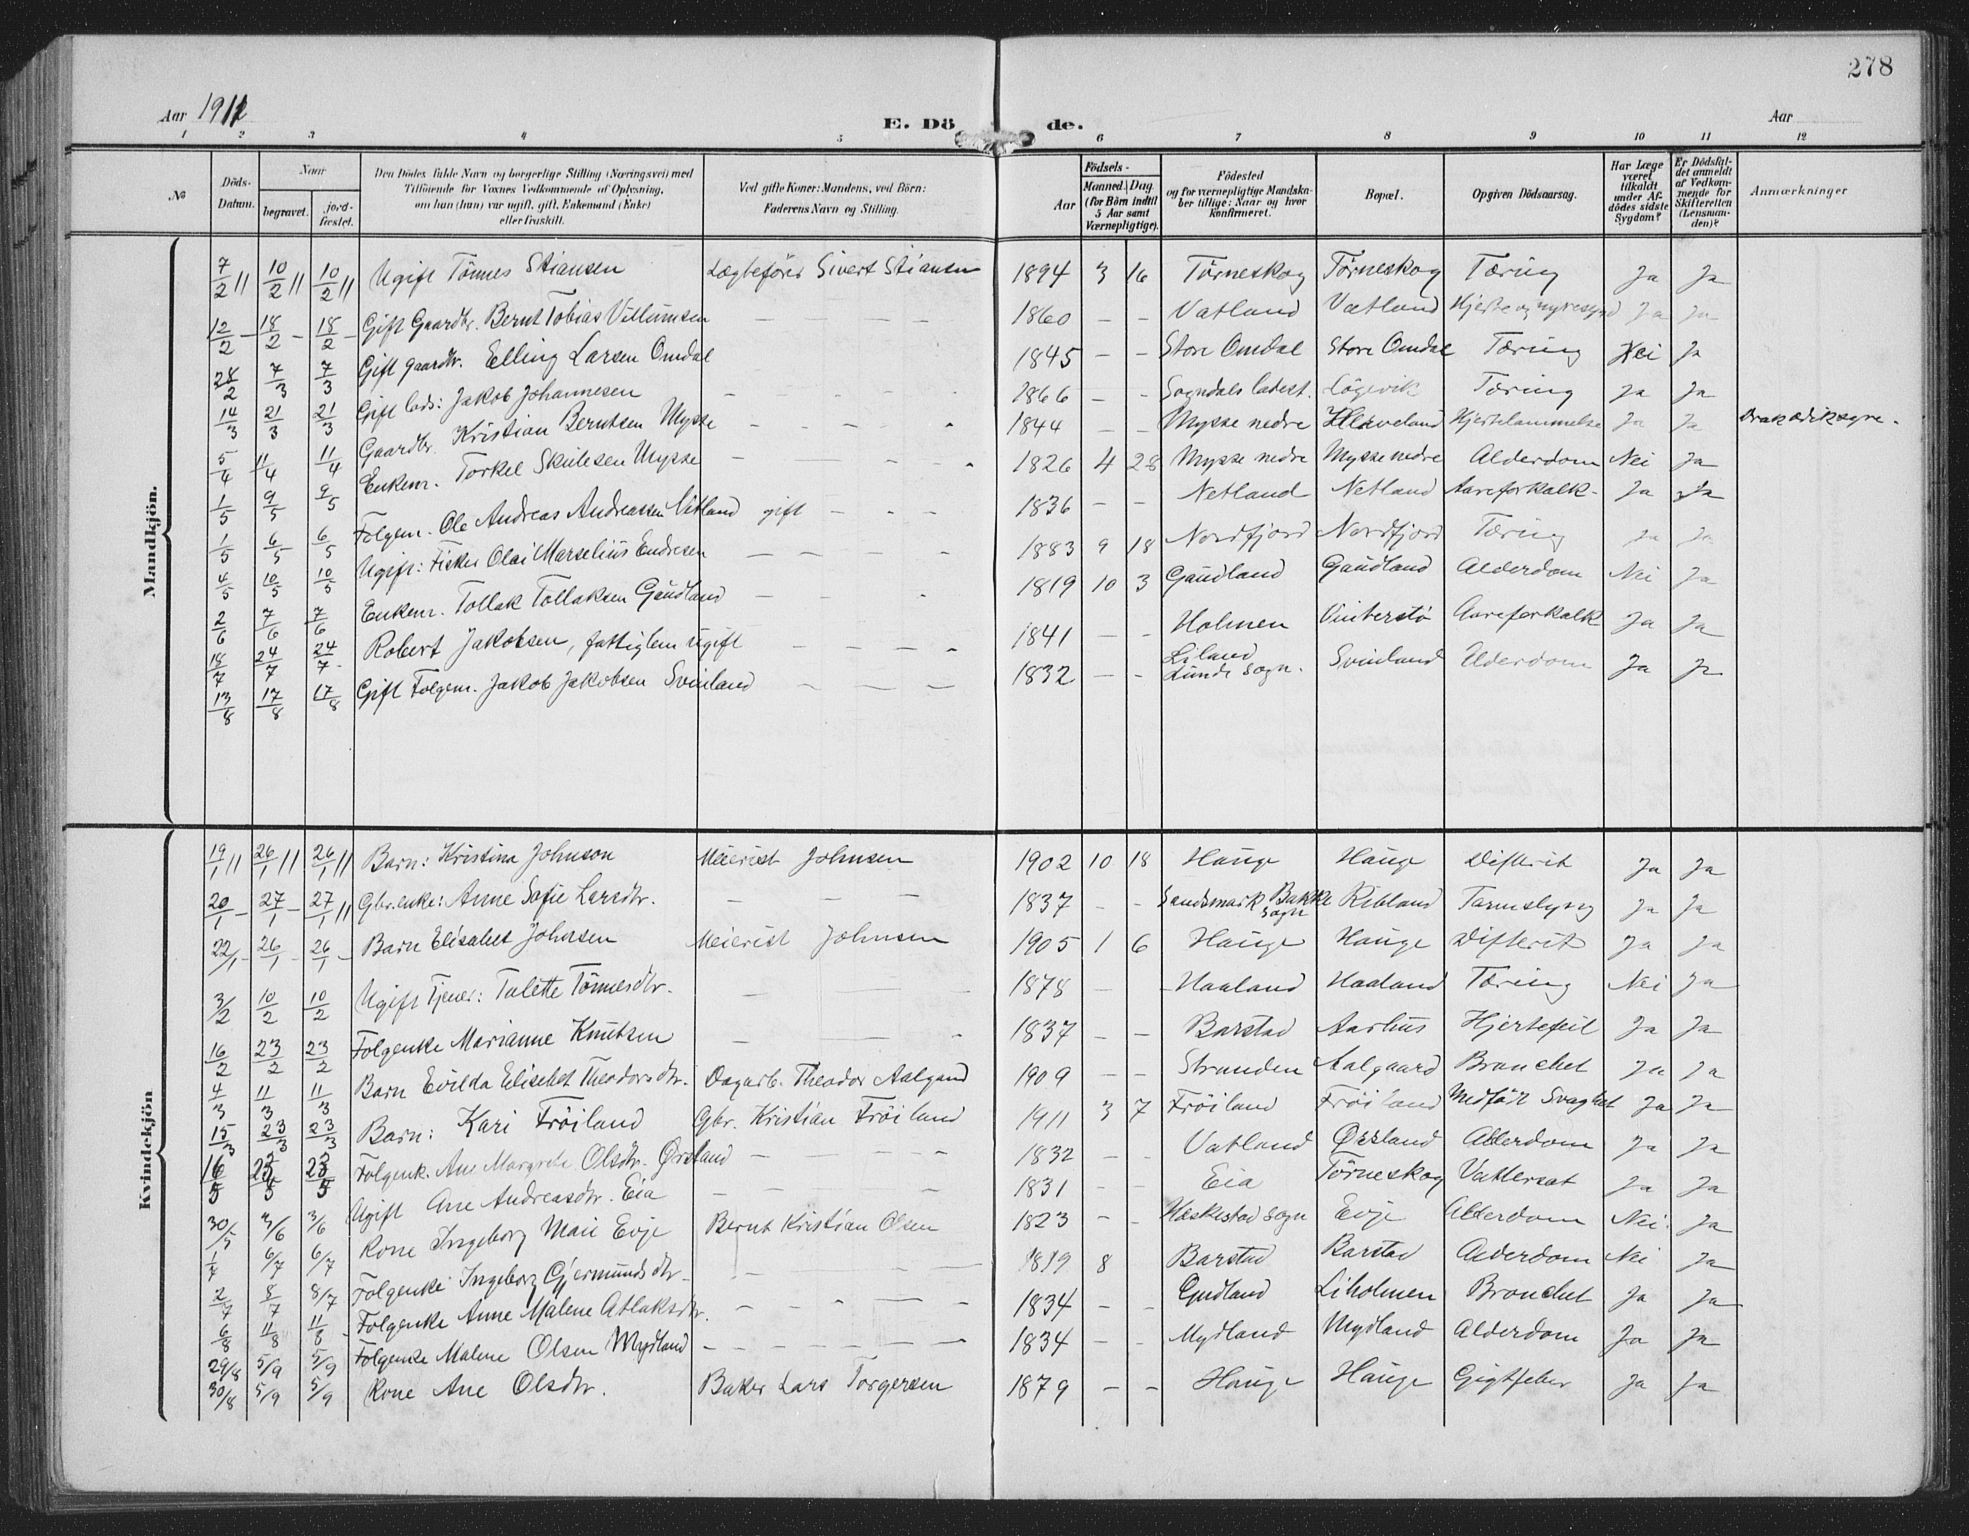 278
Aar 1911
E. Döde.
Aar
1 2 3 4 5 6 7 8 9 10 11 12
№
Döds-Datum.
Naar
begravet.
jord-fæstet.
Den Dödes fulde Navn og borgerlige Stilling (Næringsvei) med Tilföiende for Voxnes Vedkommende af Oplysning, om han (hun) var ugift, gift, Enkemand (Enke) eller fraskilt.
Ved gifte Koner: Mandens, ved Börn: Faderens Navn og Stilling.
Födsels-
Aar
Maaned. Dag (for Börn indtil 5 Aar samt Værnepligtige).
Födested og for værnepligtige Mandskaber tillige: Naar og hvor konfirmeret.
Bopæl.
Opgiven Dödsaarsag.
Har Læge været tilkaldt under Afdödes sidste Sygdom?
Er Dödsfaldet anmeldt af Vedkommende for Skifteretten (Lensmanden)?
Anmærkninger
Mandkjön.
7/2 11 10/2 11 10/2 11 Ugift Tönnes Stiansen Lægbeförer Sivert Stiansen 1894 3 16 Törneskog Törneskog Tæring Ja Ja
12/2 - 18/2 - 18/2 - Gift Gaardbr. Bernt Tobias Villumsen — 1860 - - Vatland Vatland Hjerte og nyresygd Ja Ja
28/2 7/3 7/3 Gift gaardbr. Elling Larsen Omdal 1845 - - Store Omdal Store Omdal Tæring Nei Ja
14/3 21/3 21/3 Gift lods: Jakob Johannesen — 1866 - - Sogndals ladest. Lögevik Tæring Ja Ja
5/4 11/4 11/4 Gaardbr. Kristian Berntsen Mysse — 1844 - - Mysse nedre Kleveland Hjertelammelse Ja Ja
1/5 9/5 9/5 Enkem. Torkel Skulesen Mysse — 1826 4 28 Mysse nedre Mysse nedre Alderdom Nei Ja
1/5 6/5 6/5 Folgem. Ole Andreas Andreassen Netland gift — 1836 - - Netland Netland Aareforkalk- Ja Ja
4/5 10/5 10/5 Ugift: Fisker Olai Marselius Endresen — 1883 9 18 Nordfjord Nordfjord Tæring Ja Ja
2/6 7/6 7/6 Enkem. Tollak Tollaksen Gaudland — 1819 10 3 Gaudland Gaudland Alderdom Nei Ja
18/7 24/7 24/7 Robert Jakobsen, fattiglem ugift — 1841 - - Holmen Vinterstö Aareforkalk Ja Ja
13/8 17/8 17/8 Gift Folgem. Jakob Jakobsen Svinland — 1832 - - Liland Lunde sogn. Svinland Alderdom Ja Ja
Kvindekjön
19/1 11 26/1 11 26/1 11 Barn: Kristina Johnson Meierist Johnsen 1902 10 18 Hauge Hauge Difterit Ja Ja
20/1 - 27/1 - 27/1 11 Gbr.enke: Anne Sofie Larsdtr. — 1837 - - Sandsmark Bakke sogn Ribland Tarmslyng Ja Ja
22/1 - 26/1 - 26/1 - Barn Elisabet Johnsen Meierist Johnsen 1905 1 6 Hauge Hauge Difterit Ja Ja
3/2 10/2 10/2 Ugift Tjener: Talette Tönnesdtr. — 1878 - - Haaland Haaland Tæring Nei Ja
16/2 23/2 23/2 Folgenke Marianne Knutsen — 1837 - - Barstad Aarhus Hjertefeil Ja Ja
4/3 11/3 11/3 Barn Evilda Elisebet Theodorsdtr. Dagarb. Theodor Aalgaard 1909 - - Stranden Aalgaard Bronchet Ja Ja
15/3 23/3 23/3 Barn: Kari Fröiland Gbr. Kristian Fröiland 1911 3 7 Fröiland Fröiland Medför Svaghet Ja Ja
16/5 23/5 23/5 Folgenk. Ane Margrete Olsdtr. Örsland — 1832 - - Vatland Örsland Alderdom Ja Ja
Ugift Ane Andreasdtr. Eia — 1831 - - Eia Törneskog Vattersot Ja Ja
30/5 3/6 3/6 Kone Ingeborg Mari Evje Bernt Kristian Olsen 1823 - - Heskestad sogn Evje Alderdom Nei Ja
1/7 6/7 6/7 Folgenke Ingeborg Gjermundsdtr — 1819 8 Barstad Barstad Alderdom Nei Ja
2/7 8/7 8/7 Folgenke Anne Malene Atlaksdtr. — 1834 - - Gudland Liholmen Bronchet Ja Ja
6/8 11/8 11/8 - Folgenke Malene Olsen Mydland — 1834 - - Mydland Mydland Alderdom Ja Ja
29/8 5/9 5/9
30/8 5/9 5/9 Kone Ane Olsdtr. Baker Lars Torgersen 1879 - - Hauge Hauge Gigtfeber Ja Ja